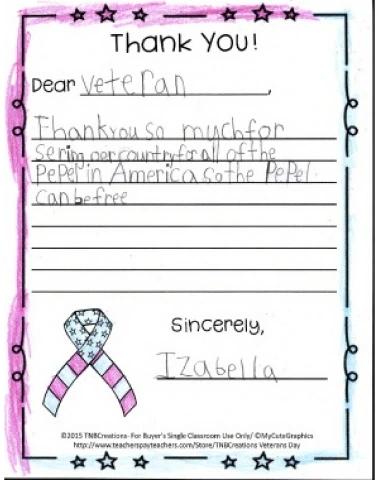 Thank You!
Dear Veteran,
Thankyou so muchfor
sering oercountryforall ofthe
PePel in America so the PePel
can be free
Sincerely,
Izabella
©2015 TNBCreations- For Buyer's Single Classroom Use Only/ ©MyCuteGraphics
http://www.teacherspayteachers.com/Store/TNBCreations Veterans Day